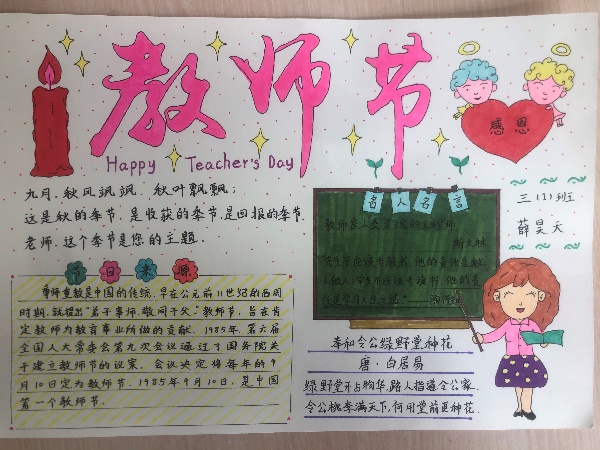 教师节
Happy Teacher's Day
感恩
三(1)班
薛昊天
九月,秋风飒飒,秋叶飘飘;
这是秋的季节,是收获的季节,是回报的季节.
老师,这个季节是您的主题.
节日来源
尊师重教是中国的传统,早在公元前11世纪的西周
时期,就提出"弟子事师,敬同于父"教师节,旨在肯
定教师为教育事业所做的贡献.1985年,第六届
全国人大常委会第九次会议通过了国务院关
于建立教师节的议案.会议决定将每年的9
月10日定为教师节.1985年9月10日,是中国
第一个教师节.
名人名言
教师是人类灵魂的工程师
斯大林
先生不应该专教书,他的责任是教
人做人;学生不应该专读书,他的责
任是学习人生之道.
奉和令公绿野堂种花
唐·白居易
绿野堂开占物华,路人指道令公家.
令公桃李满天下,何用堂前更种花.